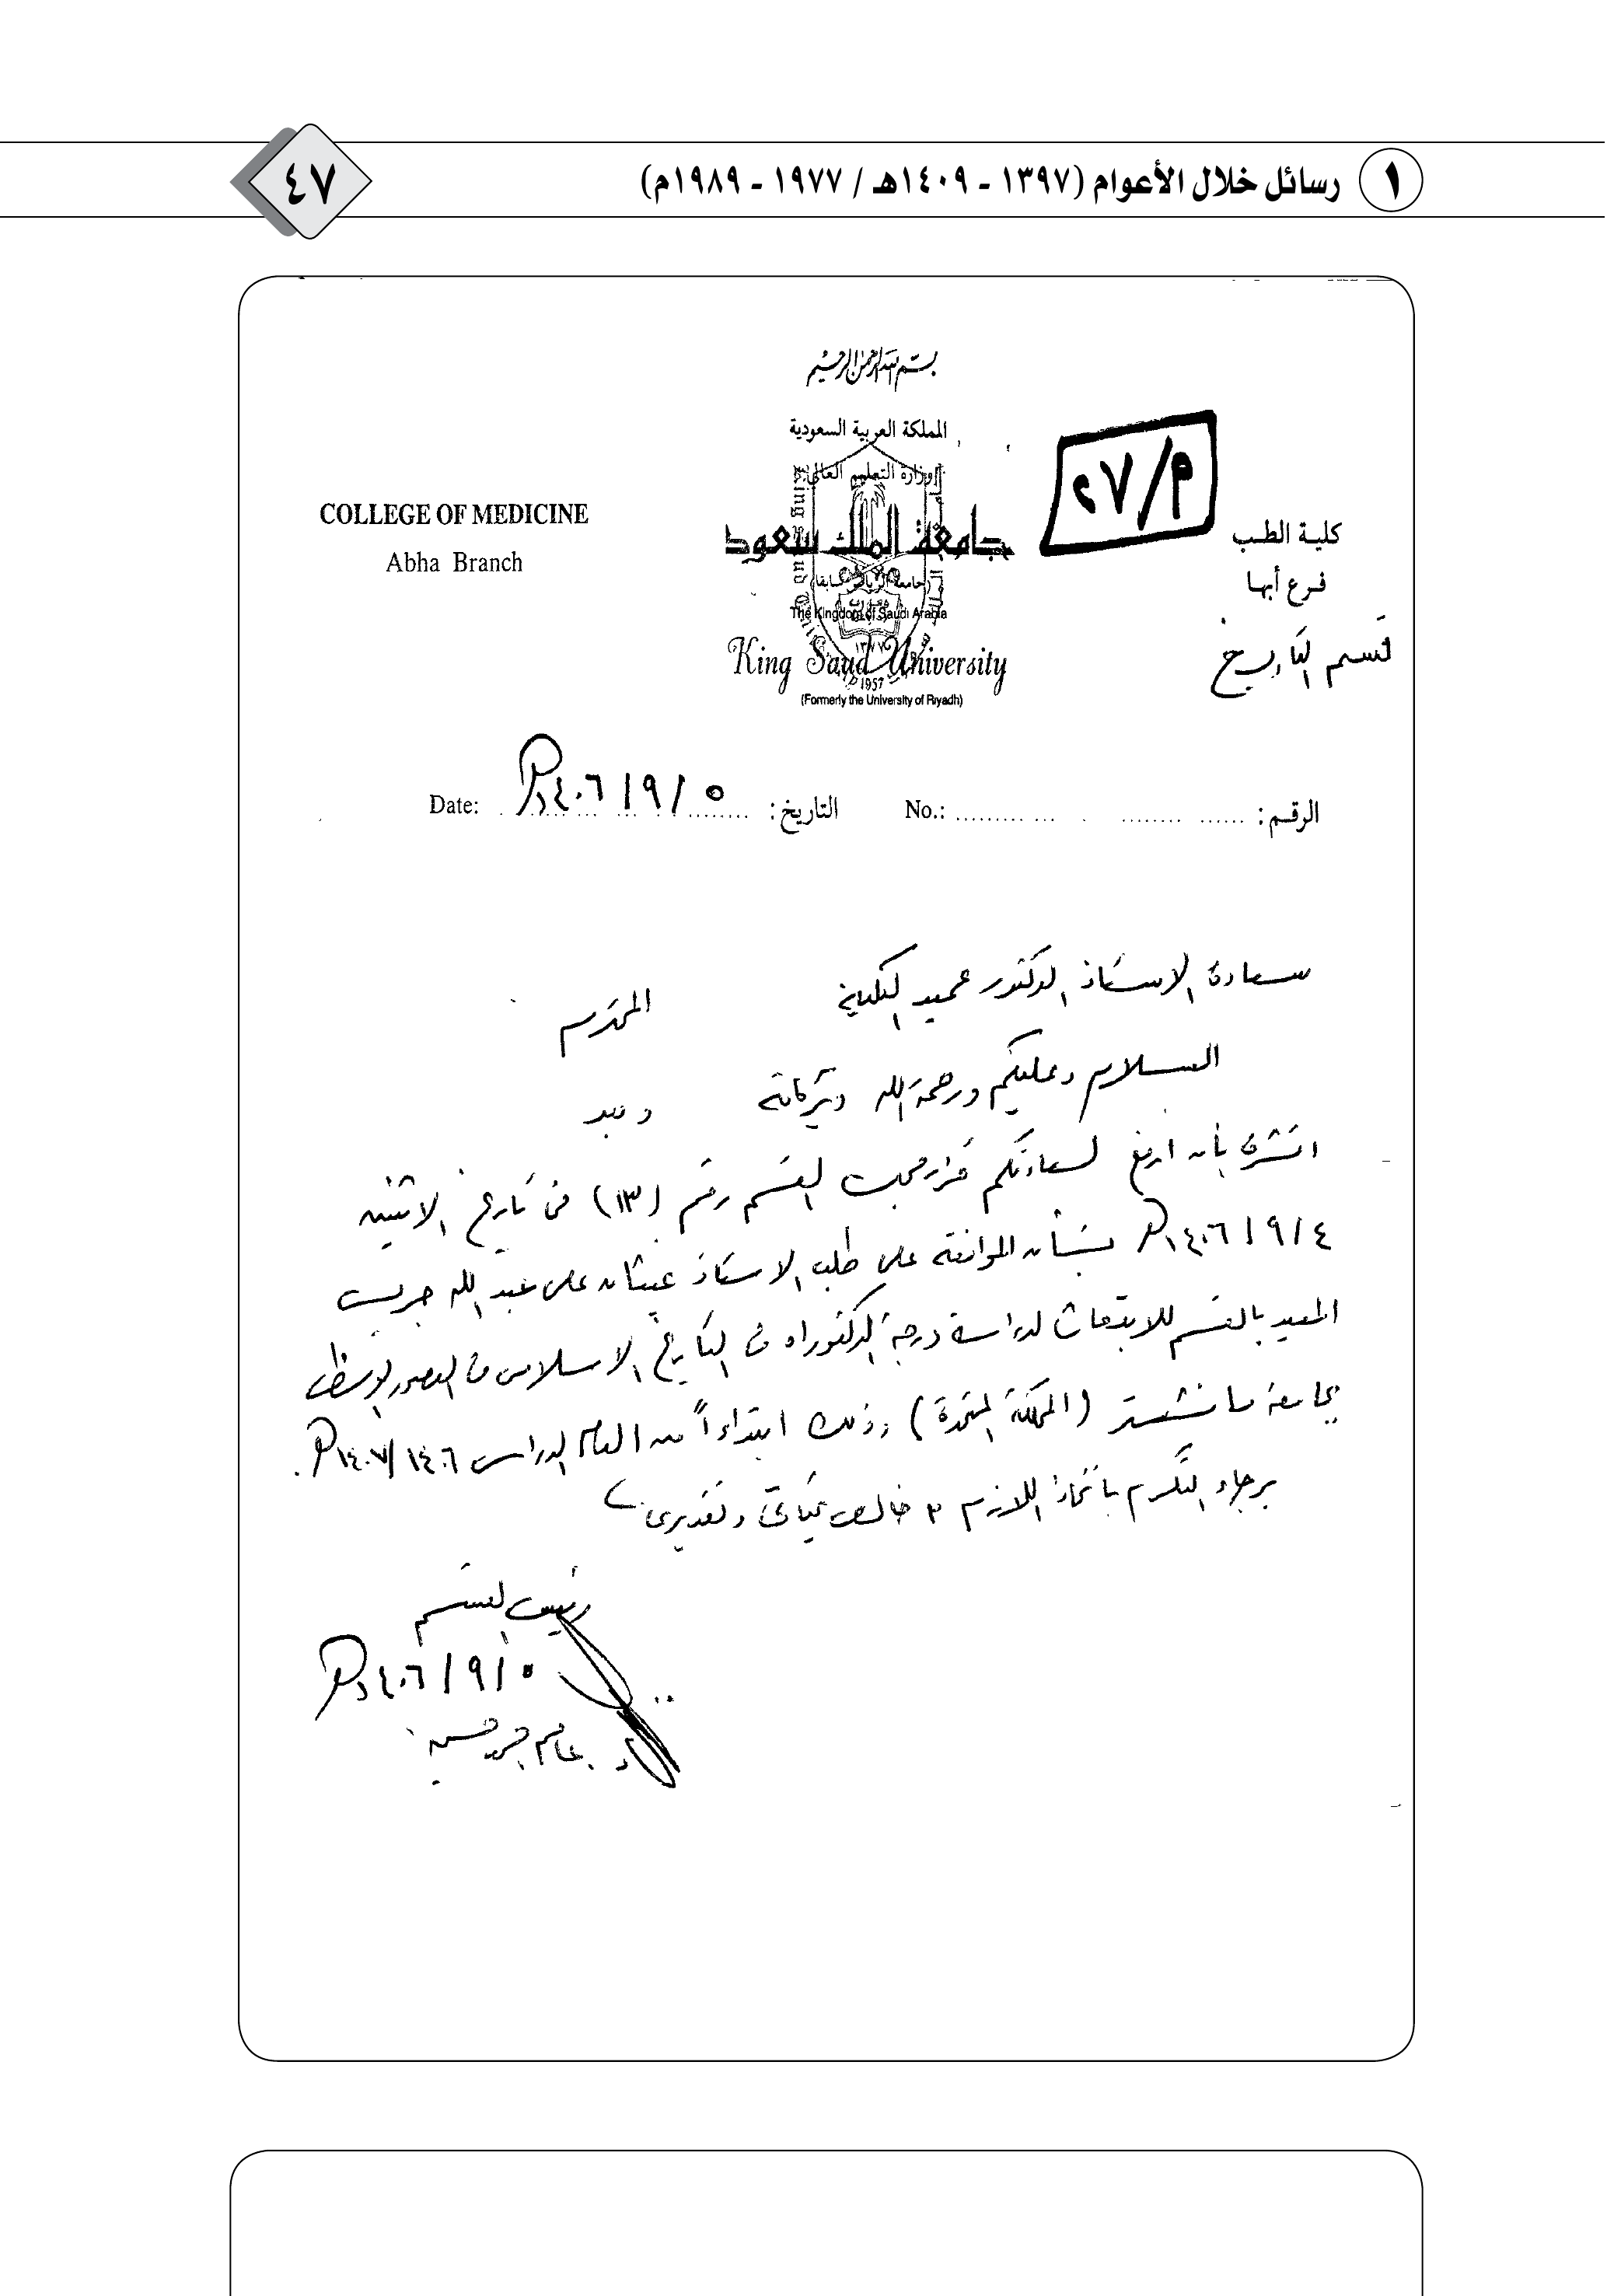 ١ رسائل خلال الأعوام (١٣٩٧ - ١٤٠٩هـ / ١٩٧٧ - ١٩٨٩م)
٤٧
بسم الله الرحمن الرحيم
المملكة العربية السعودية
وزارة التعليم العالي
جامعة الملك سعود
(جامعة الرياض سابقا)
The Kingdom of Saudi Arabia
King Saud University
١٣٧٧
1957
(Formerly the University of Riyadh)
م/٢٧
كلية الطب
فرع أبها
قسم التاريخ
COLLEGE OF MEDICINE
Abha Branch
الرقم: No.:
التاريخ: ٥/٩/١٤٠٦هـ Date:
سعادة الاستاذ الدكتور عميد الكلية المحترم
السلام وعليكم ورحمة الله وبركاته وبعد
اتشرف بأن ارفع لسعادتكم قرار مجلس القسم رقم (١٣) في تاريخ الاثنين
٤/٩/١٤٠٦هـ بشأن الموافقة على طلب الاستاذ غيثان على عبد الله جريس
المعيد بالقسم للابتعاث لدراسة درجة الدكتوراه في التاريخ الاسلامى في العصور الوسطى
بجامعة مانشستر (المملكة المتحدة) وذلك ابتداءاً من العام الدراسى ١٤٠٦/١٤٠٧هـ.
برجاء التكرم باتخاذ اللازم خالص تحياتى وتقديرى
رئيس القسم
٥/٩/١٤٠٦هـ
د.